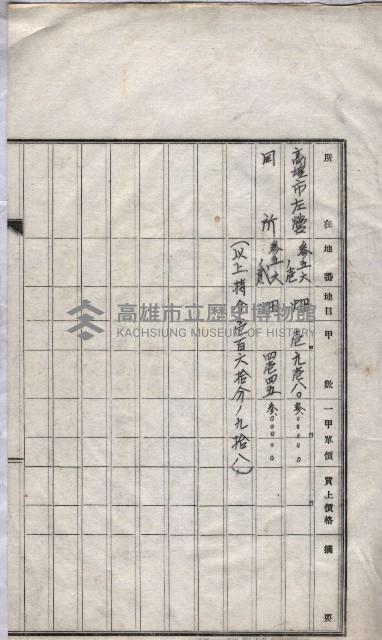 所在地番地目甲數一甲單價買上價格摘要
高雄市左營 参五六ノ壱 畑 壱九壱八〇 参〇〇〇〇〇
同所 参五六ノ貳 畑 四壱四五 参〇〇〇〇〇
(以上持分壱百六拾分ノ九拾八)
高雄市立歷史博物館
KAOHSIUNG MUSEUM OF HISTORY